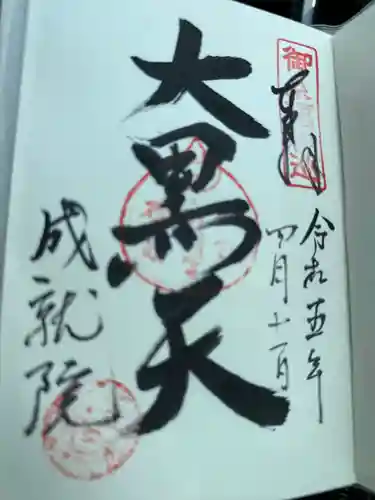 奉拝
令和五年
四月十一日
大黒天
成就院